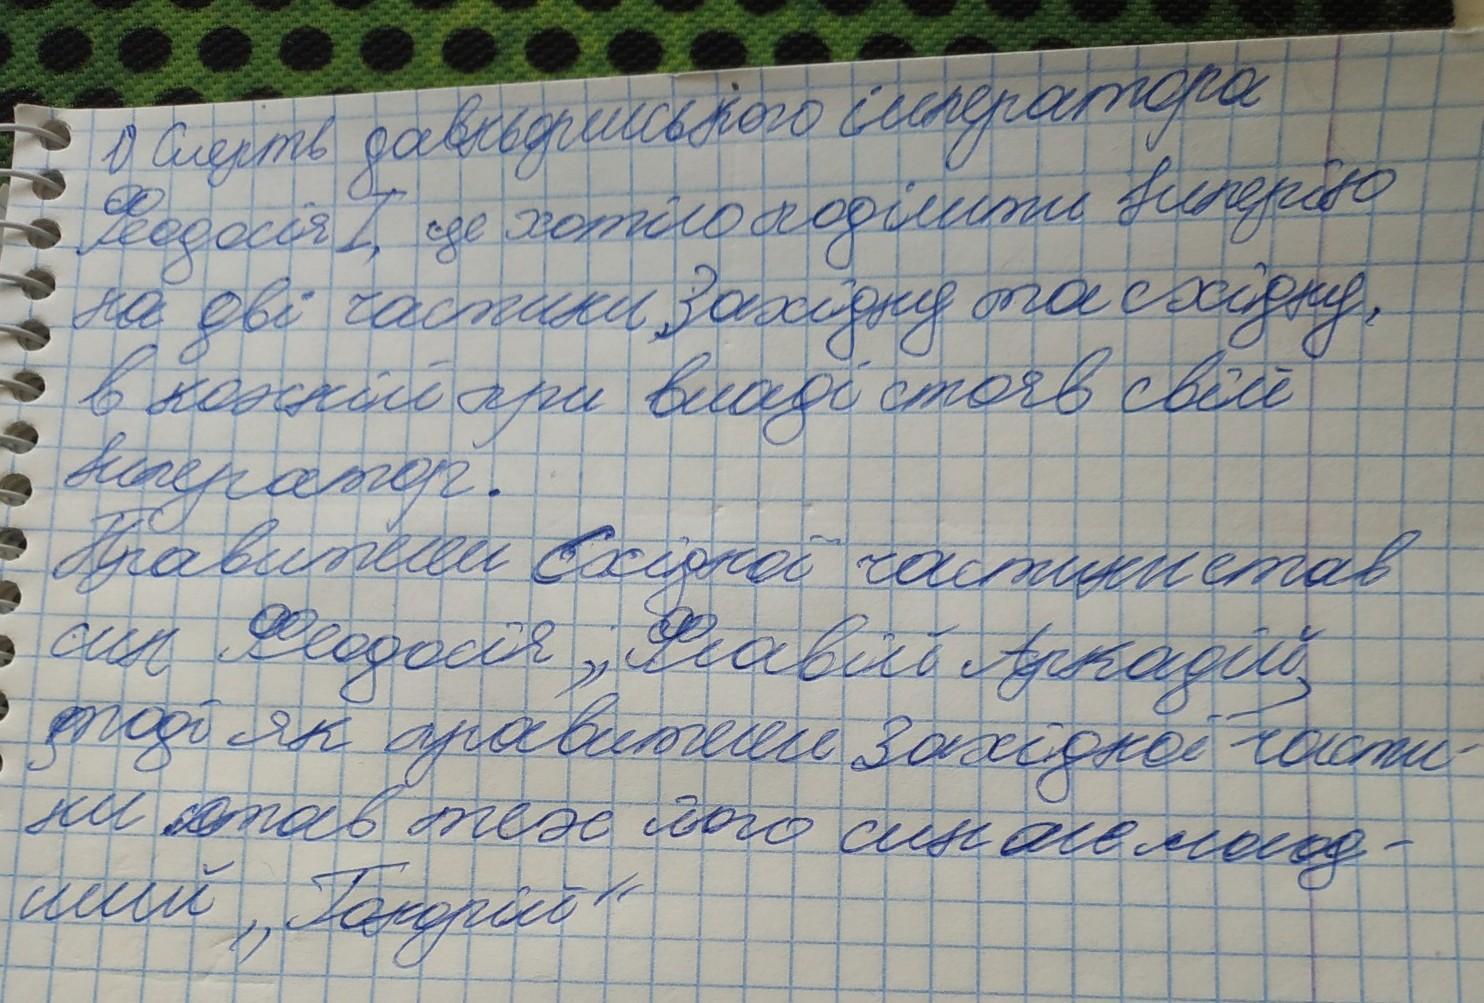 1) Смерть давньоримського імператора
Феодосія I, це хотіло поділити Імперію
на дві частини, Західну та східну,
в кожній при владі стояв свій
Імператор.
Правителем Східної частини став
син Феодосія „Флавій Аркадій,
тоді як правителем Західної части-
ни став теж його син але молод-
ший „Гонорій“